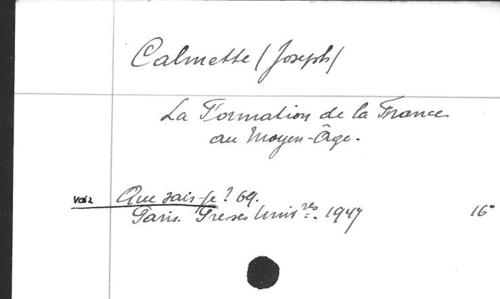 Calmette (Joseph)
La Formation de la France
au Moyen-Âge.
Voir Que sais-je? 69.
Paris. Presses Univ res. 1947 16°